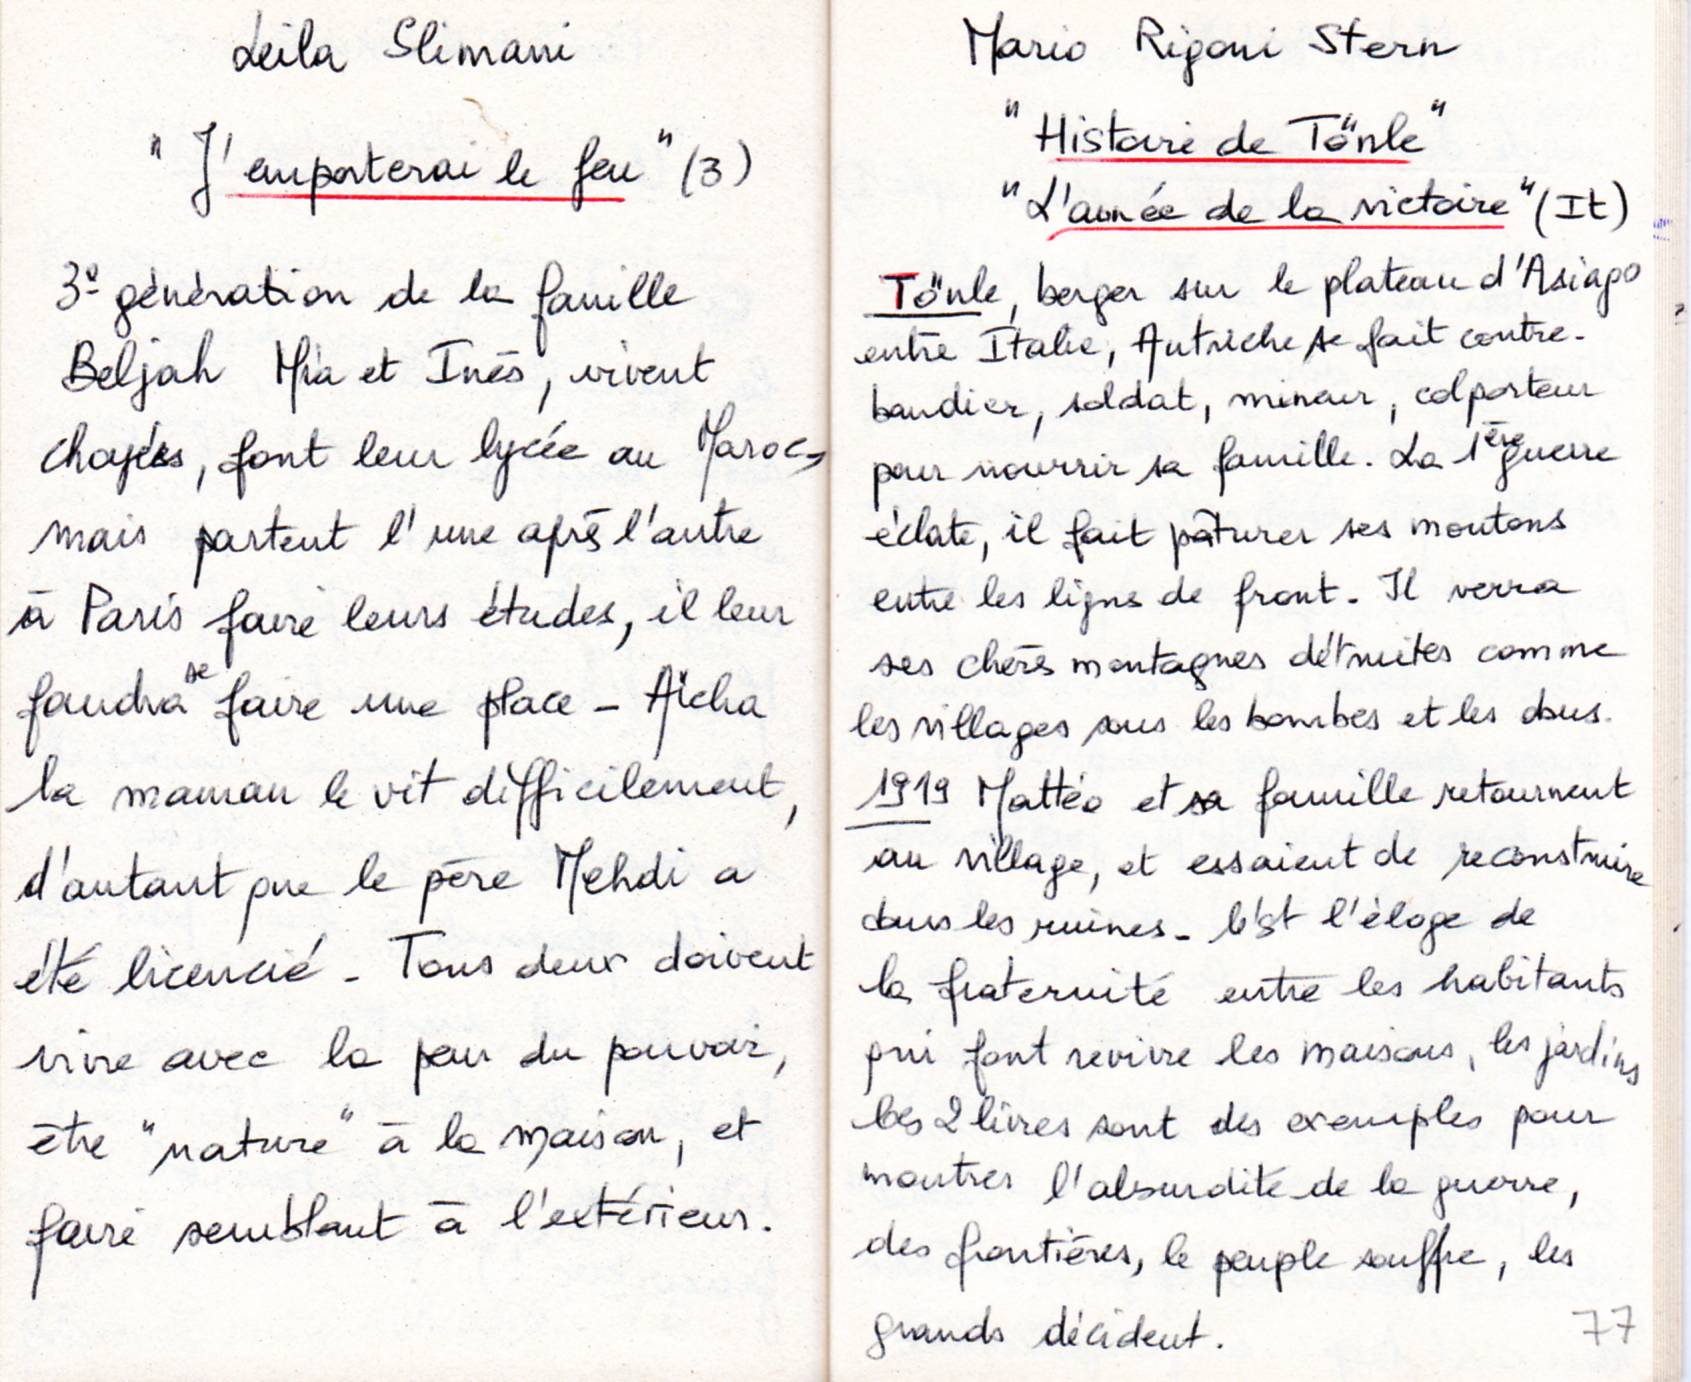 Leila Slimani
"J'emporterai le feu" (3)
3e génération de la famille
Beljah Mia et Inès, vivent
choyées, font leur lycée au Maroc,
mais partent l'une après l'autre
à Paris faire leurs études, il leur
faudra se faire une place - Aïcha
la maman le vit difficilement,
d'autant que le père Mehdi a
été licencié - Tous deux doivent
vivre avec la peur du pouvoir,
être "nature" à la maison, et
faire semblant à l'extérieur.
Mario Rigoni Stern
"Histoire de Tönle"
"L'année de la victoire" (It)
Tönle, berger sur le plateau d'Asiago
entre Italie, Autriche se fait contre-
bandier, soldat, mineur, colporteur
pour nourrir sa famille. La 1ère guerre
éclate, il fait pâturer ses moutons
entre les lignes de front. Il verra
ses chères montagnes détruites comme
les villages sous les bombes et les obus.
1919 Mattéo et sa famille retournent
au village, et essaient de reconstruire
dans les ruines - C'est l'éloge de
la fraternité entre les habitants
qui font revivre les maisons, les jardins
Ces 2 livres sont des exemples pour
montrer l'absurdité de la guerre,
des frontières, le peuple souffre, les
grands décident.
77